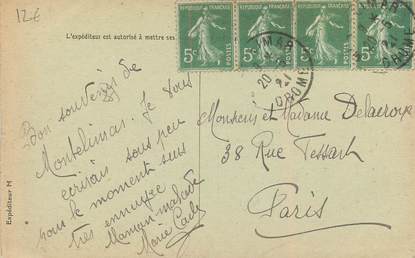 12€
L'expéditeur est autorisé à mettre ses
RÉPUBLIQUE FRANÇAISE RÉPUBLIQUE FRANÇAISE RÉPUBLIQUE FRANÇAISE RÉPUBLIQUE FRANÇAISE
5c 5c 5c 5c
POSTES POSTES POSTES POSTES
MAR
20
21
DROME
Bon souvenir de
Montelimar. Je vous
écrirais sous peu
pour le moment suis
très ennuyée
Maman malade
Marie
Monsieur et Madame Delacroix
38 Rue Tessart
Paris
Expéditeur M